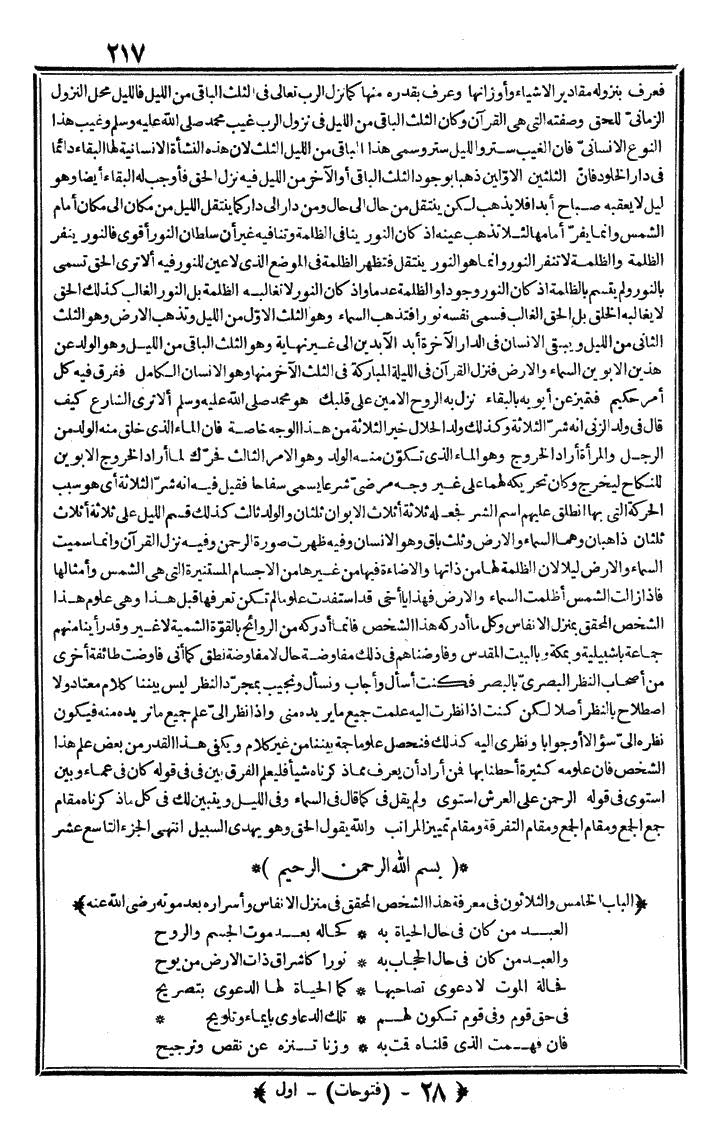 ٢١٧
فعرف بنزوله مقادير الاشياء وأوزانها وعرف بقدره منها كما نزل الرب تعالى فى الثلث الباقى من الليل فالليل محل النزول
الزمانىّ للحق وصفته التى هى القرآن وكان الثلث الباقى من الليل فى نزول الرب غيب محمد صلى الله عليه وسلم وغيب هذا
النوع الانسانىّ فان الغيب ستر والليل ستر وسمى هذا الباقى من الليل الثلث لان هذه النشأة الانسانية لها البقاء دائما
فى دار الخلود فانّ الثلثين الاوّلين ذهبا بوجود الثلث الباقى أو الآخر من الليل فيه نزل الحق فأوجب له البقاء أيضا وهو
ليل لا يعقبه صباح أبدا فلا يذهب لكن ينتقل من حال الى حال ومن دار الى دار كما ينتقل الليل من مكان الى مكان أمام
الشمس وانما يفرّ أمامها لئلا تذهب عينه اذ كان النور ينافى الظلمة وتنافيه غير أن سلطان النور أقوى فالنور ينفر
الظلمة والظلمة لا تنفر النور وانما هو النور ينتقل فتظهر الظلمة فى الموضع الذى لا عين للنور فيه ألا ترى الحق تسمى
بالنور ولم يقسم بالظلمة اذ كان النور وجودا والظلمة عدما واذ كان النور لا تغالبه الظلمة بل النور الغالب كذلك الحق
لا يغالبه الخلق بل الحق الغالب فسمى نفسه نورا فتذهب السماء وهو الثلث الاوّل من الليل وتذهب الارض وهو الثلث
الثانى من الليل ويبقى الانسان فى الدار الآخرة أبد الآبدين الى غير نهاية وهو الثلث الباقى من الليل وهو الولد عن
هذين الابوين السماء والارض فنزل القرآن فى الليلة المباركة فى الثلث الآخر منها وهو الانسان الكامل ففرق فيه كل
أمر حكيم فتميز عن أبويه بالبقاء نزل به الروح الامين على قلبك هو محمد صلى الله عليه وسلم ألا ترى الشارع كيف
قال فى ولد الزنى انه شرّ الثلاثة وكذلك ولد الحلال خير الثلاثة من هذا الوجه خاصة فان الماء الذى خلق منه الولد من
الرجل والمرأة أراد الخروج وهو الماء الذى تكوّن منه الولد وهو الامر الثالث فحرّك لما أراد الخروج الابوين
للنكاح ليخرج وكان تحريكه لهما على غير وجه مرضىّ شرعا يسمى سفاحا فقيل فيه انه شرّ الثلاثة أى هو سبب
الحركة التى بها انطلق عليهم اسم الشر فجعله ثلاثة أثلاث الابوان ثلثان والولد ثالث كذلك قسم الليل على ثلاثة أثلاث
ثلثان ذاهبان وهما السماء والارض وثلث باق وهو الانسان وفيه ظهرت صورة الرحمن وفيه نزل القرآن وانما سميت
السماء والارض ليلا لان الظلمة لهما من ذاتها والاضاءة فيها من غيرها من الاجسام المستنيرة التى هى الشمس وأمثالها
فاذا زالت الشمس أظلمت السماء والارض فهذا يا أخى قد استفدت علوما لم تكن تعرفها قبل هذا وهى علوم هذا
الشخص المحقق بمنزل الانفاس وكل ما أدركه هذا الشخص فانما أدركه من الروائح بالقوّة الشمية لا غير وقد رأينا منهم
جماعة باشبيلية وبمكة وبالبيت المقدس وفاوضناهم فى ذلك مفاوضة حال لا مفاوضة نطق كما أنى فاوضت طائفة أخرى
من أصحاب النظر البصرىّ بالبصر فكنت أسأل وأجاب ونسأل ونجيب بمجرّد النظر ليس بيننا كلام معتاد ولا
اصطلاح بالنظر أصلا لكن كنت اذا نظرت اليه علمت جميع ما يريده منى واذا نظر الىّ علم جميع ما نريده منه فيكون
نظره الىّ سؤالا أو جوابا ونظرى اليه كذلك فنحصل علوما جمة بيننا من غير كلام ويكفى هذا القدر من بعض علم هذا
الشخص فان علومه كثيرة أحطنا بها فمن أراد أن يعرف مما ذكرناه شيأ فليعلم الفرق بين فى فى قوله كان فى عماء وبين
استوى فى قوله الرحمن على العرش استوى ولم يقل فى كما قال فى السماء وفى الليل ويتبين لك فى كل ما ذكرناه مقام
جمع الجمع ومقام الجمع ومقام التفرقة ومقام تمييز المراتب والله يقول الحق وهو يهدى السبيل انتهى الجزء التاسع عشر
*( بسم الله الرحمن الرحيم )*
﴿الباب الخامس والثلاثون فى معرفة هذا الشخص المحقق فى منزل الانفاس وأسراره بعد موته رضى الله عنه﴾
العبد من كان فى حال الحياة به * كحاله بعد موت الجسم والروح
والعبد من كان فى حال الحجاب به * نورا كاشراق ذات الارض من يوح
فحالة الموت لا دعوى تصاحبها * كما الحياة لها الدعوى بتصريح
فى حق قوم وفى قوم تكون لهم * تلك الدعاوى بايماء وتلويح *
فان فهمت الذى قلناه قمت به * وزنا تنزه عن نقص وترجيح
﴿ ٢٨ - (فتوحات) - اول ﴾